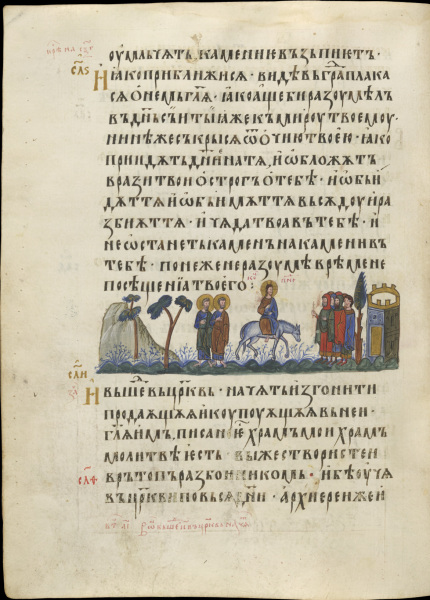 оумлъчѧтъ. камениевъзъпиѥтъ ·
Иꙗкоприближисѧ · видѣвъградъплака
сѧонемьглѧ · ꙗкоащебиразоумѣлъ
въдн҃ьсьитыꙗжекъмироутвоемоу ·
нн҃ѣжесъкрысѧѿочиютвоєю · ꙗко
прїидѫтьдн҃їенатѧ, иобложѫтъ
вразитвоиострогъотебѣ · иобыи
дѫттѧиобьимѫттѧвьсѫдоу · ира
збиѫттѧ · ичѧдатвоавътебѣ · и
неѡстанетькаменънакаменивъ
тебѣ · понеженеразоумѣврѣмене
посѣщениатвоего :
Ивъшедвъцр҃квь · начѧтьизгонити
продаѫщѫѧикоупоуѫщѫѧвьнеи ·
гл҃ѧимъ, писаноѥ҃храмъмоихрамъ
молитвѣесть · выжествористеи
врътопъразбоиникомь · ибѣоучѧ
въцр҃квиповьсѧдн҃и · архиереижеи